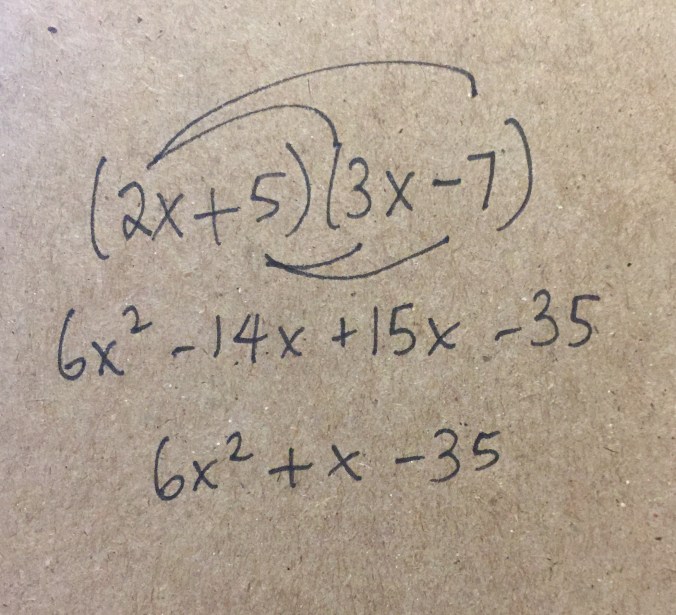 (2x+5)(3x-7)
6x² -14x +15x -35
6x² + x -35